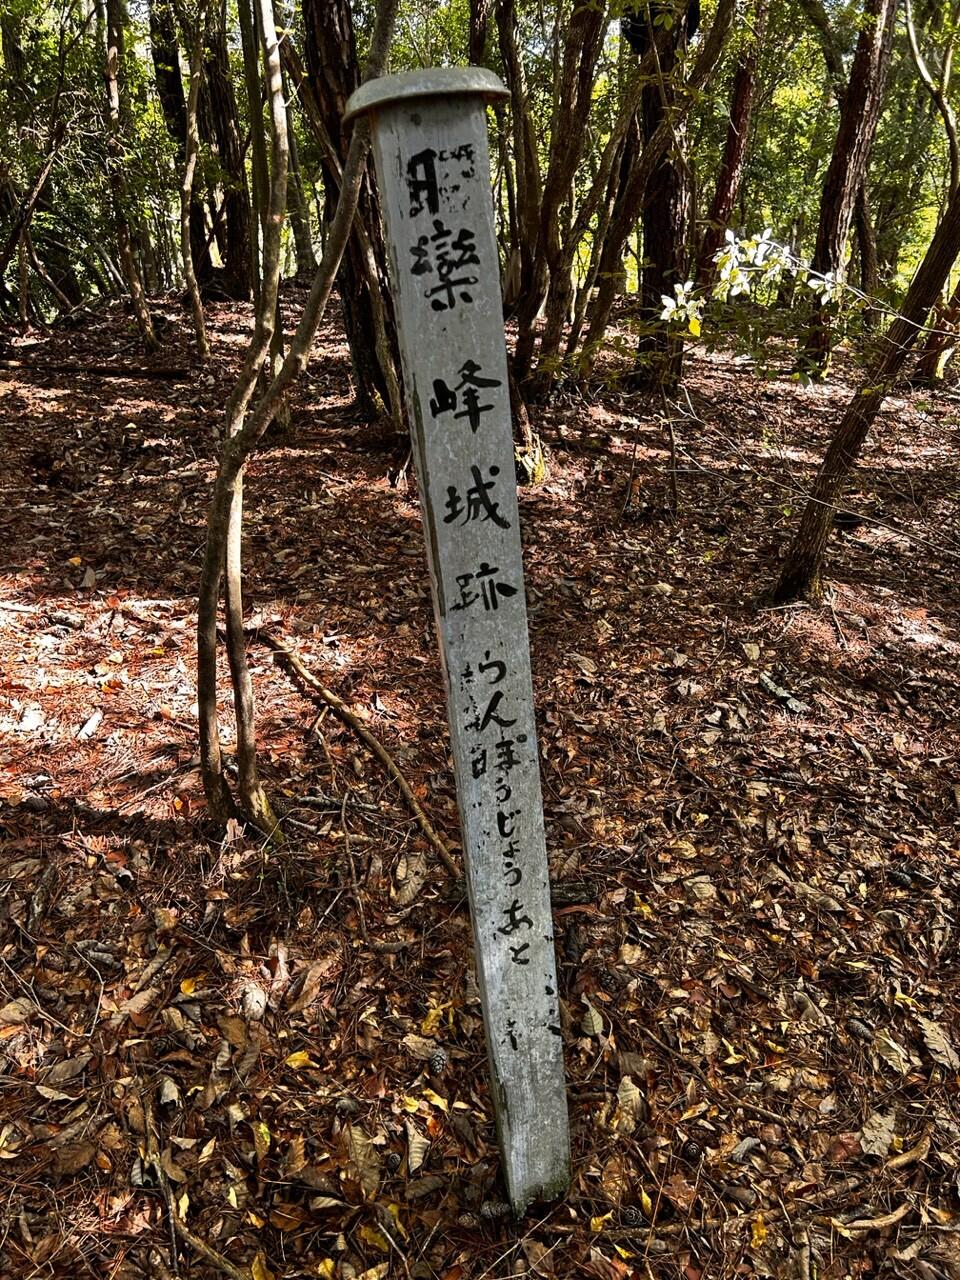 欒峰城跡
らんぽうじょうあと